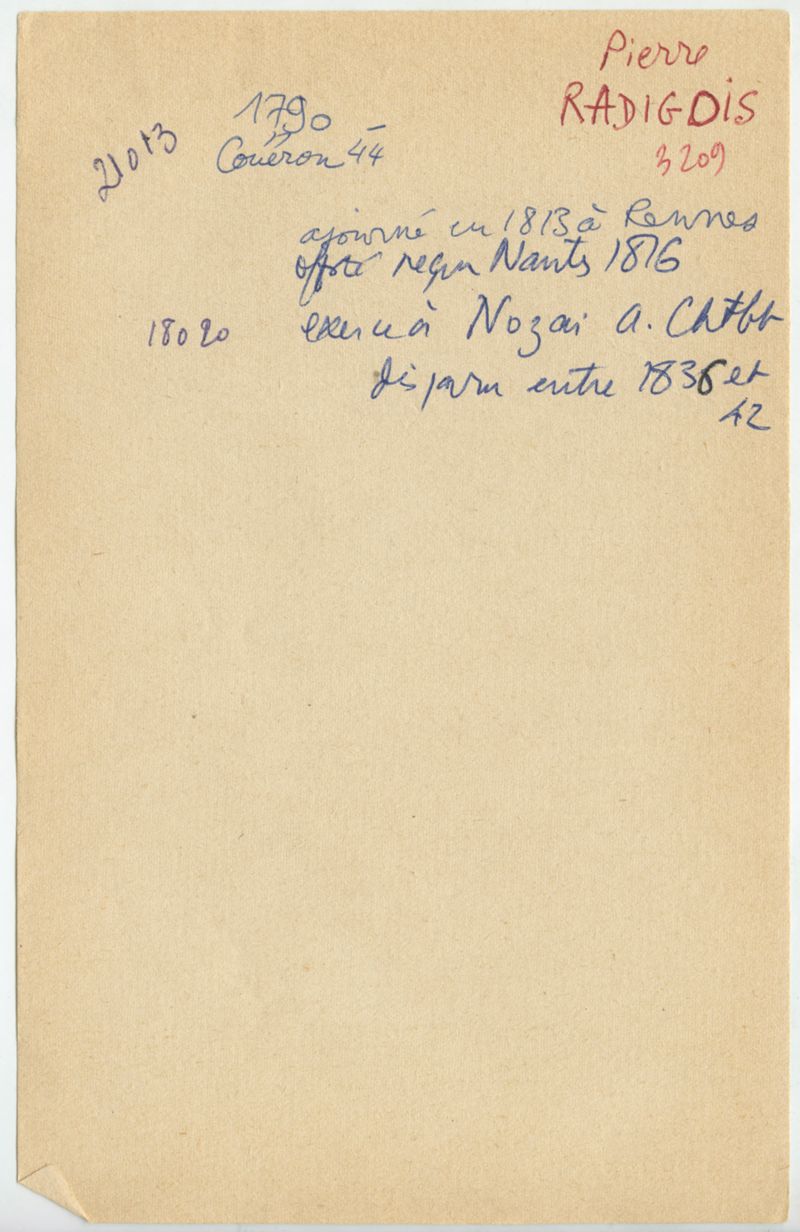 Pierre
RADIGOIS
3209
1790 –
21013 Couëron 44
ajourné en 1813 à Rennes
reçu Nantes 1816
18020 exerce à Nozai a. Chtbt
disparu entre 1836 et
42